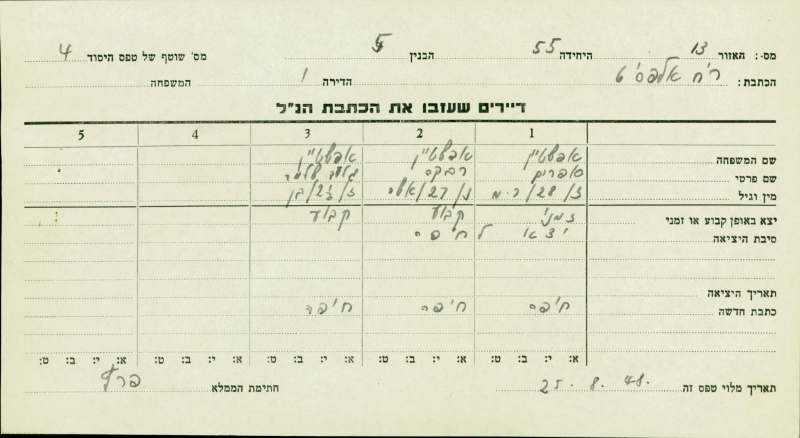 מס.: האזור 13 היחידה 55 הבנין 5 מס' שוטף של טפס היסוד 4
הכתבת: רח' אלפס ט הדירה 1 המשפחה
דיירים שעזבו את הכתבת הנ"ל
1 2 3 4 5
שם המשפחה אפשטיין אפשטיין אפשטיין
שם פרטי אפרים רבקה שלמה
מין וגיל ז/28/ר.מ נ/27/אשה ז/2½/בן
יצא באופן קבוע או זמני זמני קבוע קבוע
סיבת היציאה יצאו לחיפה
תאריך היציאה
כתבת חדשה חיפה חיפה חיפה
א: י: ב: ט: א: י: ב: ט: א: י: ב: ט: א: י: ב: ט: א: י: ב: ט:
תאריך מלוי טפס זה 25.8.48. חתימת הממלא